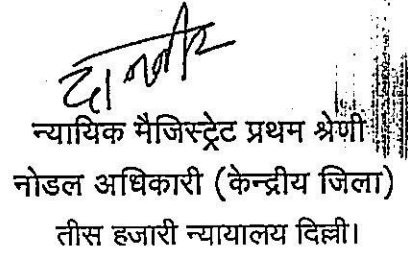 न्यायिक मैजिस्ट्रेट प्रथम श्रेणी
नोडल अधिकारी (केन्द्रीय जिला)
तीस हजारी न्यायालय दिल्ली।